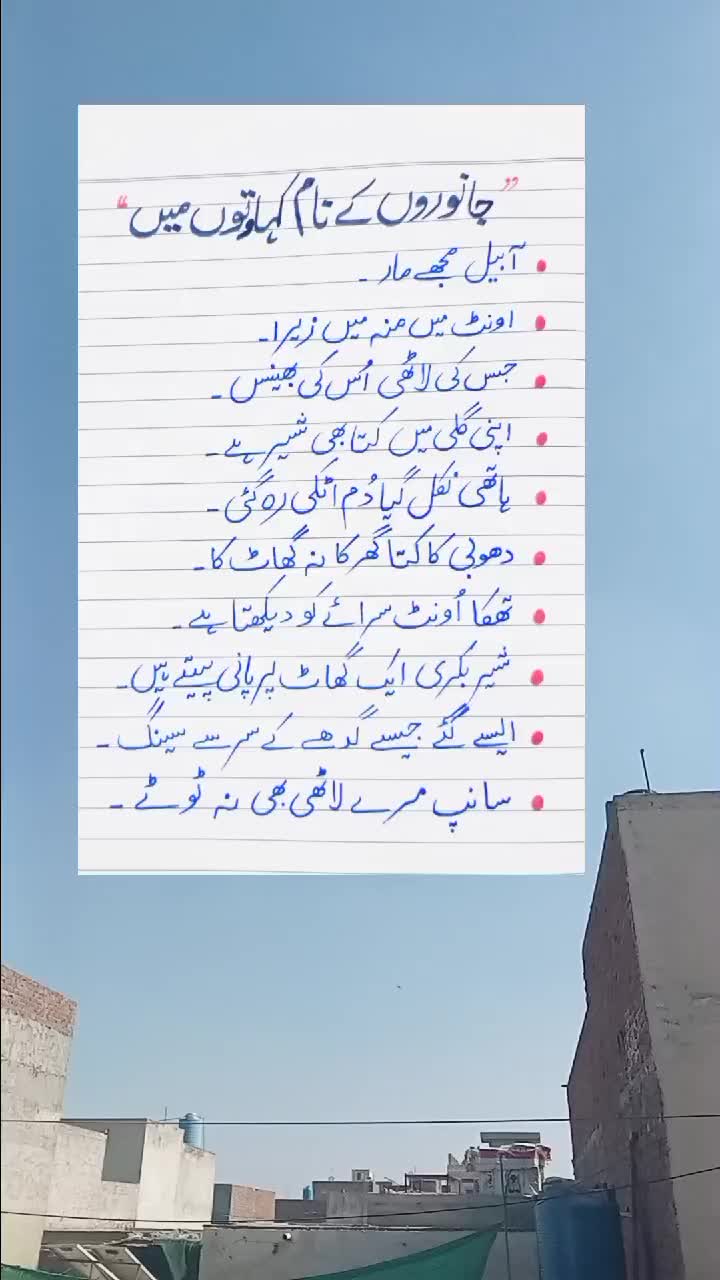 "جانوروں کے نام کہاوتوں میں"
• آ بیل مجھے مار ۔
• اونٹ میں منہ میں زیرا۔
• جس کی لاٹھی اُس کی بھینس ۔
• اپنی گلی میں کتا بھی شیر ہے ۔
• ہاتھی نکل گیا دُم اٹکی رہ گئی ۔
• دھوبی کا کتا گھر کا نہ گھاٹ کا ۔
• تھکا اُونٹ سرائے کو دیکھتا ہے ۔
• شیر بکری ایک گھاٹ پر پانی پیتے ہیں۔
• ایسے گئے جیسے گدھے کے سر سے سینگ ۔
• سانپ مرے لاٹھی بھی نہ ٹوٹے ۔